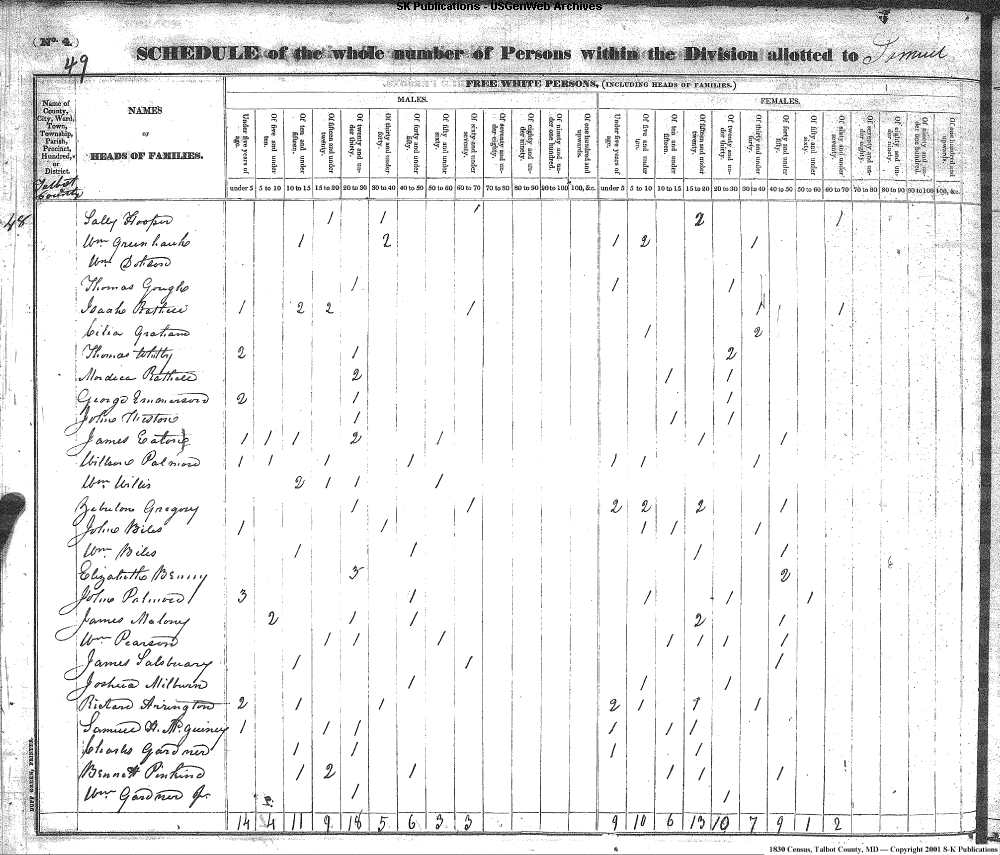 SK Publications - USGenWeb Archives
(No. 4.)
49
SCHEDULE of the whole number of Persons within the Division allotted to Samuel
FREE WHITE PERSONS, (INCLUDING HEADS OF FAMILIES.)
MALES. FEMALES.
Name of County, City, Ward, Town, Township, Parish, Precinct, Hundred, or District.
NAMES
OF
HEADS OF FAMILIES.
Talbot County
Under five years of age. Of five and under ten. Of ten and under fifteen. Of fifteen and under twenty. Of twenty and under thirty. Of thirty and under forty. Of forty and under fifty. Of fifty and under sixty. Of sixty and under seventy. Of seventy and under eighty. Of eighty and under ninety. Of ninety and under one hundred. Of one hundred and upwards. Under five years of age. Of five and under ten. Of ten and under fifteen. Of fifteen and under twenty. Of twenty and under thirty. Of thirty and under forty. Of forty and under fifty. Of fifty and under sixty. Of sixty and under seventy. Of seventy and under eighty. Of eighty and under ninety. Of ninety and under one hundred. Of one hundred and upwards.
under 5 5 to 10 10 to 15 15 to 20 20 to 30 30 to 40 40 to 50 50 to 60 60 to 70 70 to 80 80 to 90 90 to 100 100, &c. under 5 5 to 10 10 to 15 15 to 20 20 to 30 30 to 40 40 to 50 50 to 60 60 to 70 70 to 80 80 to 90 90 to 100 100, &c.
48 Sally Hooper 1 1 1 2 1
Wm Greenhawk 1 2 1 2 1
Wm Dobson
Thomas Gough 1 1 1
Isaac Bathell 1 2 2 1 1 1
Cilia Graham 1 2
Thomas Whitby 2 1 2
Mordica Bathell 2 1 1
George Emmerson 2 1 1
John Weston 1 1 1
James Eaton 1 1 1 2 1 1 1
Willson Palmore 1 1 1 1 1 1 1
Wm Willis 2 1 1 1
Zebulon Gregory 1 1 2 2 2 1
John Biles 1 1 1 1 1
Wm Biles 1 1 1 1
Elizabeth Benny 3 2
John Palmore 3 1 1 1 1
James Malony 2 1 1 2 1
Wm Pearson 1 1 1 1 1 1 1
James Salsbuary 1 1 1
Joshua Milburn 1 1 1
Richard Arrington 2 1 1 2 1 1 1
Samuel H. McGuiney 1 1 1 1 1 1
Charles Gardner 1 1 1 1
Bennett Pinkind 1 2 1 1 1 1
Wm Gardner Jr 1 1
14 4 11 9 18 5 6 3 3 9 10 6 13 10 7 9 1 2
DUFF GREEN, PRINTER.
1830 Census, Talbot County, MD — Copyright 2001 S-K Publications